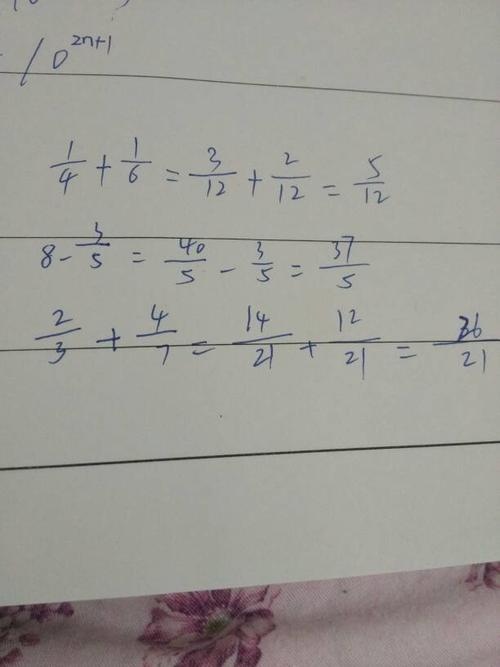 10^{2n+1}
1/4 + 1/6 = 3/12 + 2/12 = 5/12
8 - 3/5 = 40/5 - 3/5 = 37/5
2/3 + 4/7 = 14/21 + 12/21 = 26/21